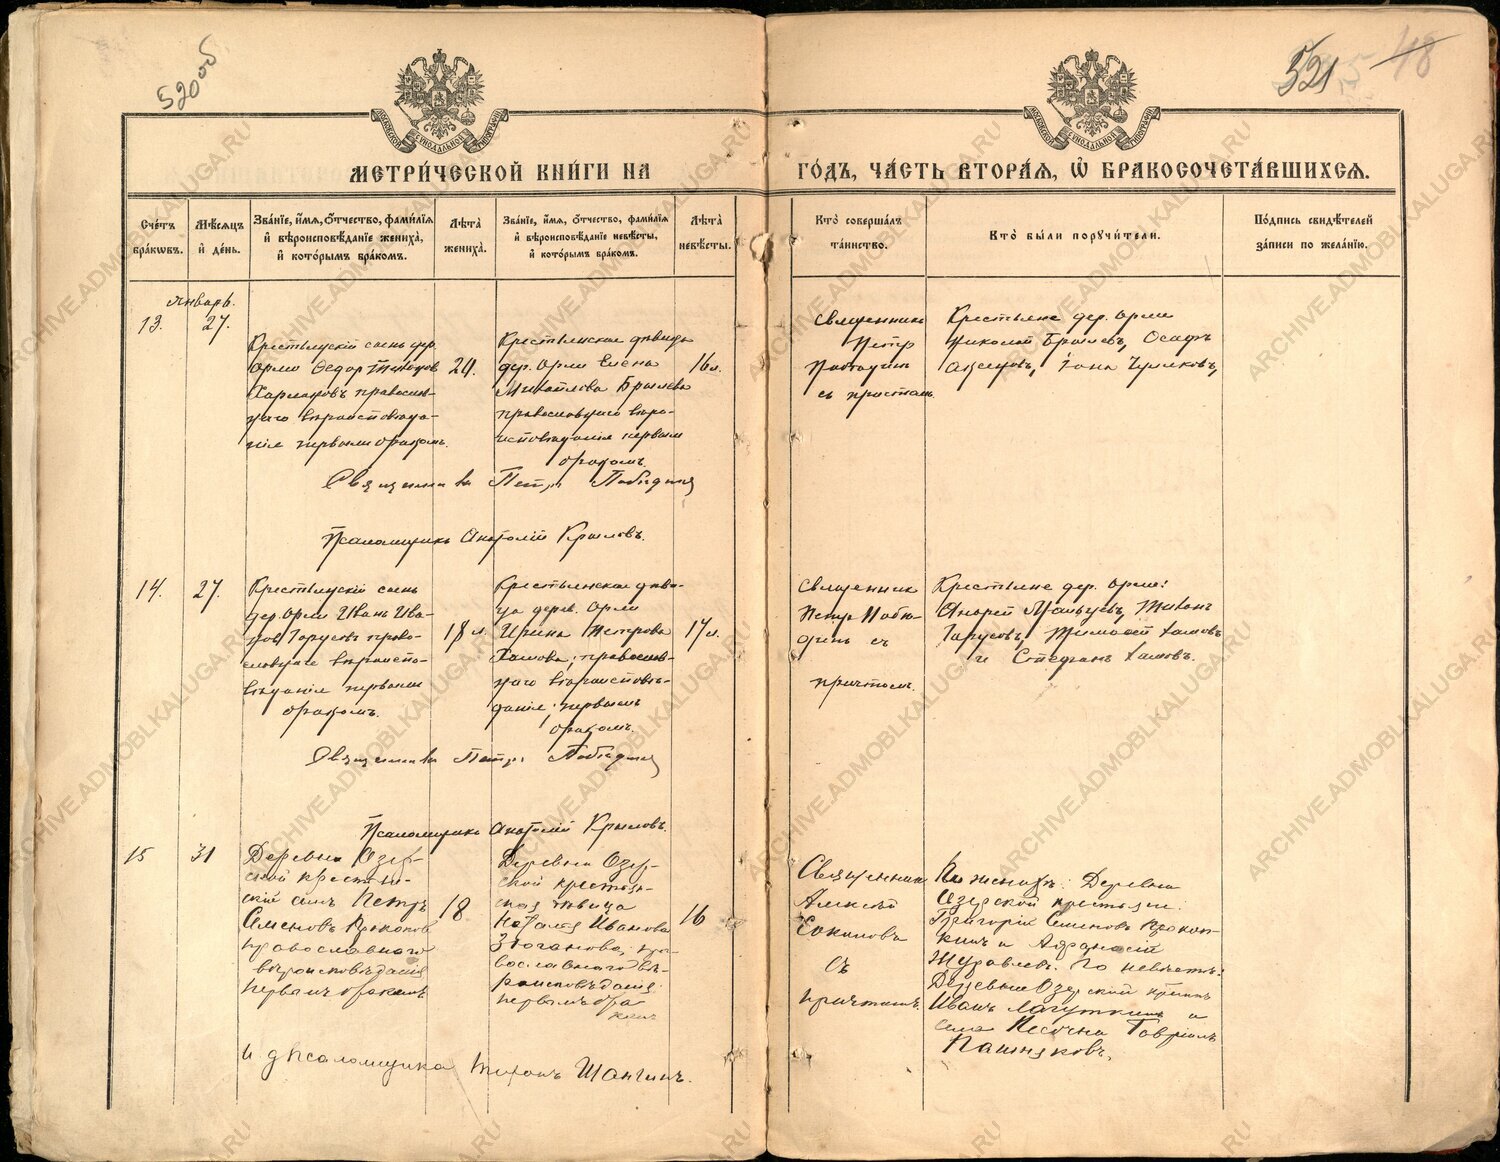 520 об
521
48
МОСКОВСКОЙ СѴНОДАЛЬНОЙ ТИПОГРАФІИ
МОСКОВСКОЙ СѴНОДАЛЬНОЙ ТИПОГРАФІИ
МЕТРИ́ЧЕСКОЙ КНИ́ГИ НА ГО́ДЪ, ЧА́СТЬ ВТОРА́Я, Ѡ БРАКОСОЧЕТА́ВШИХСЯ.
Сче́тъ бра́кѡвъ.
Мѣ́сѧцъ и҆ де́нь.
Зва́нїе, и҆́мѧ, ѻ҆́тчество, фами́лїѧ и҆ вѣроисповѣ́данїе жениха̀, и҆ кото́рымъ бра́комъ.
Лѣ́та жениха̀.
Зва́нїе, и҆́мѧ, ѻ҆́тчество, фами́лїѧ и҆ вѣроисповѣ́данїе невѣ́сты, и҆ кото́рымъ бра́комъ.
Лѣ́та невѣ́сты.
Кто̀ соверша́лъ та́инство.
Кто̀ бы́ли порꙋчи́тели.
По́дпись свидѣ́телей за́писи по жела́нїю.
Январь.
13.
27.
Крестьянскій сынъ дер.
Орли Ѳедор
Харламовъ православ-
наго вѣроисповѣда-
нія первымъ бракомъ.
24.
Крестьянская дѣвица
дер. Орли Елена
Михайлова Брылева
православнаго вѣро-
исповѣданія первым
бракомъ.
16 л.
Священникъ
Петр
съ причтомъ
Крестьяне дер. Орли
Николай Брылевъ, Осафъ
Іона
Священникъ Петръ Победин
Псаломщикъ Анатолій Крыловъ.
14.
27.
Крестьянскій сынъ
дер. Орли Иванъ Ива-
новъ Тарусов право-
славнаго вѣроиспо-
вѣданія первымъ
бракомъ.
18 л.
Крестьянская дѣви-
ца дерев. Орли
Ирина Петрова
Хамова, православ-
наго вѣроисповѣ-
данія, первымъ
бракомъ.
17 л.
Священник
Петр Побѣ-
динъ съ
причтомъ.
Крестьяне дер. Орли:
Андрей Мальцевъ, Тихонъ
Тарусовъ, Тимофей Хамовъ
и Стефанъ Хамовъ.
Священникъ Петръ Победин
Псаломщикъ Анатолій Крыловъ.
15
31
Деревни Озер-
ской крестьян-
скій сынъ Петръ
Семеновъ Прокопкин
православнаго
вѣроисповѣданія
первымъ бракомъ
18
Деревни Озер-
ской крестьян-
ская дѣвица
Наталія Иванова
пра-
вославнаго вѣ-
роисповѣданія
первымъ бра
комъ
16
Священник
Алексѣй
Соколовъ
съ
причтомъ.
По женихѣ: Деревни
Озерской крестьяне:
Григорій Семенов Прокоп-
кинъ и Афанасій
Журавлевъ. По невѣстѣ:
Деревни Озерской крестьян.
Иванъ Лагуткинъ и
села Песочна Гавріилъ
Пашняковъ.
И. д. псаломщика Тихонъ Шангинъ.
ARCHIVE.ADMOBLKALUGA.RU